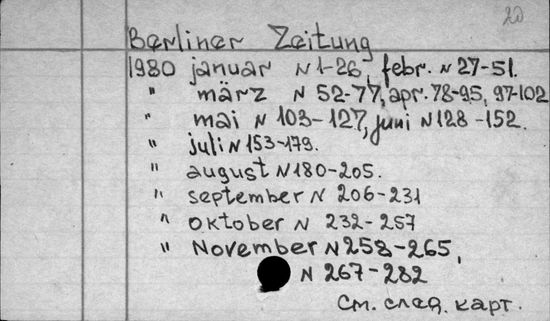 20
Berliner Zeitung
1980 januar N 1-26, febr. N 27-51.
" märz N 52-77, apr. 78-95, 97-102
" mai N 103-127, juni N 128-152.
" juli N 153-179.
" august N 180-205.
" september N 206-231
" oktober N 232-257
" November N 258-265,
N 267-282
См. след. карт.